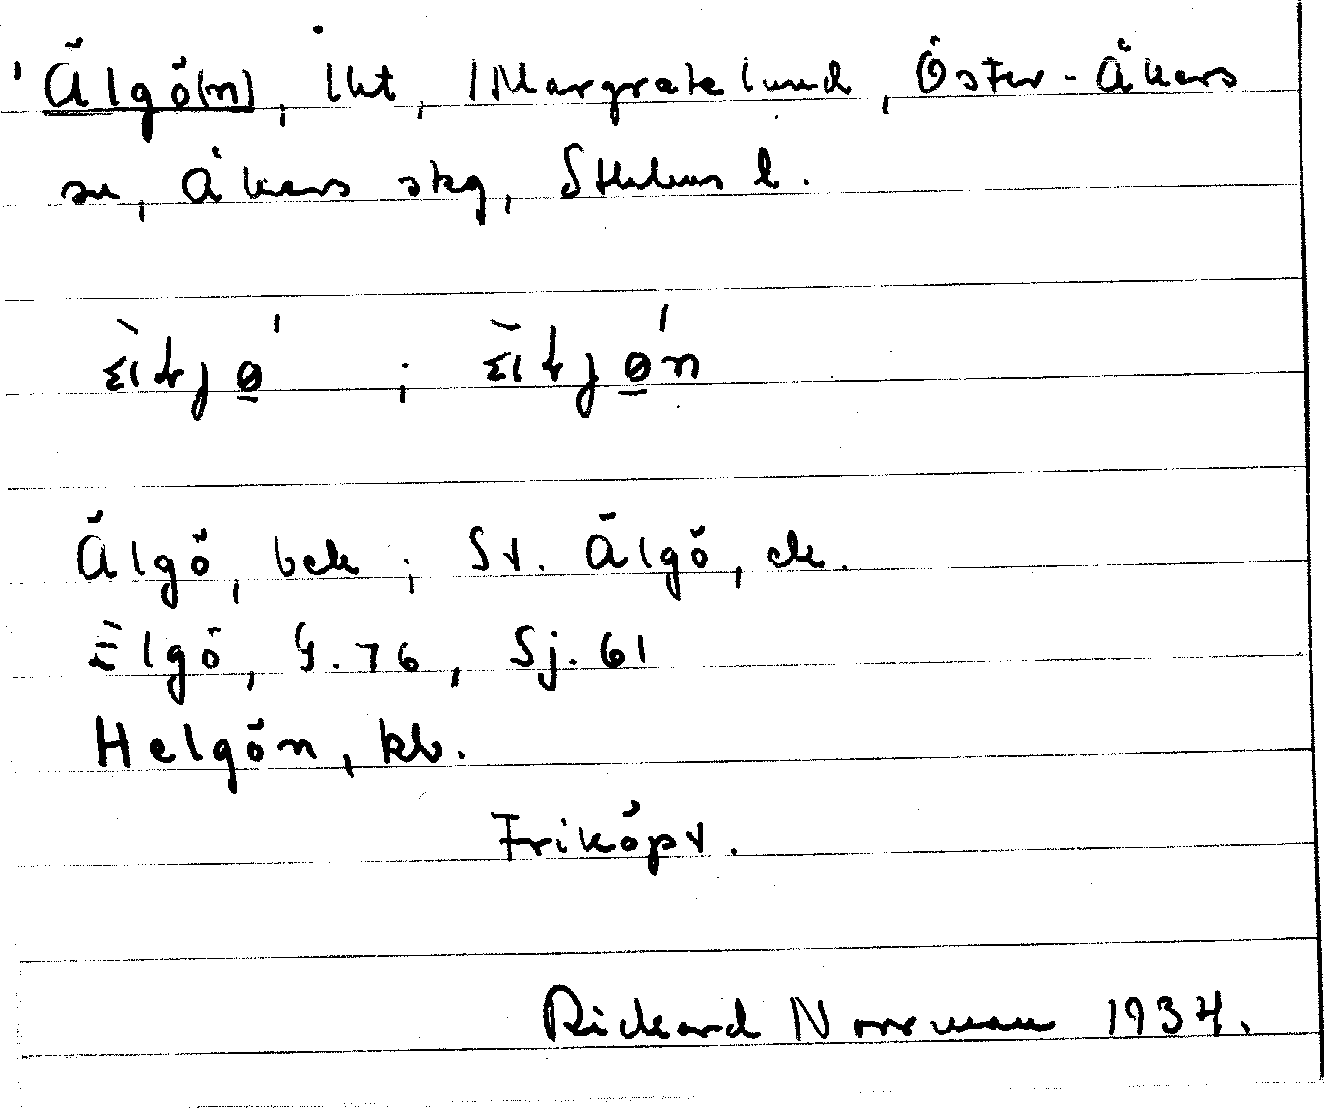 Älgö(n), lht, Margretelund, Öster-Åkers
sn, Åkers skg, Sthlms l.
Älgö, bek; St. Älgö, ek.
Elgö, G. 76, Sj. 61
Helgön, kb.
Friköpt.
Rickard Norrman 1934.